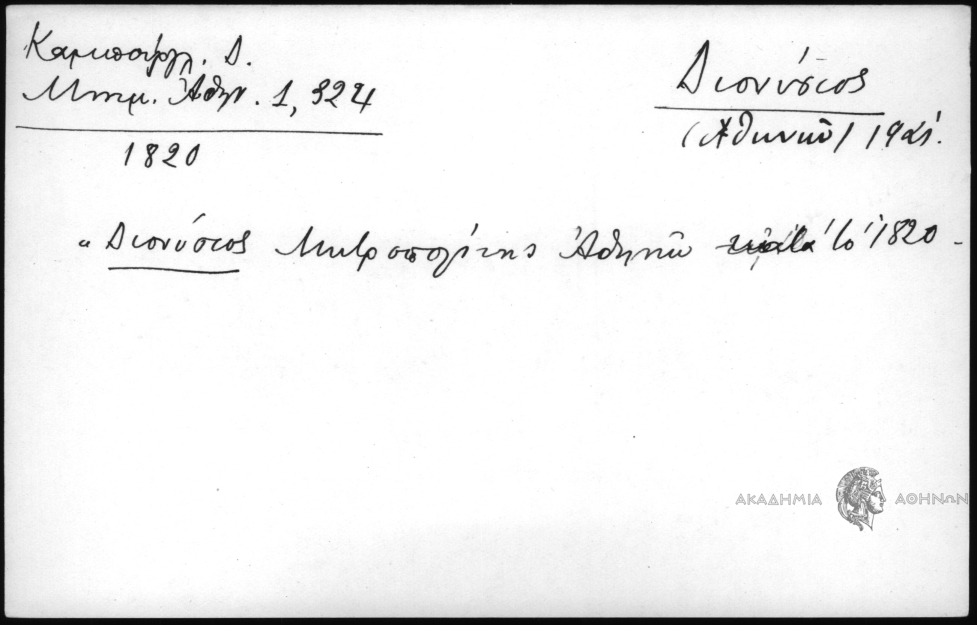 Καμπούργλ. Δ.
Μνημ. Ἀθην. 1, 324
1820
Διονύσιος
(Ἀθηνῶν) 19
“Διονύσιος Μητροπολίτης Ἀθηνῶν κατὰ τὸ 1820 -
ΑΚΑΔΗΜΙΑ ΑΘΗΝΩΝ